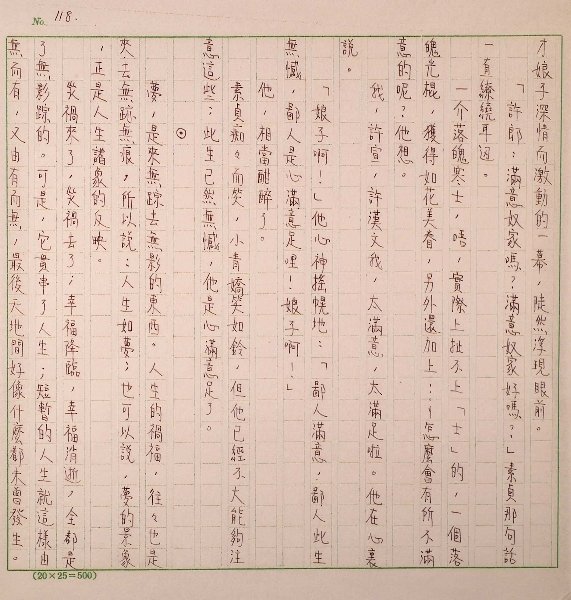 No. 118.
才娘子深情而激動的一幕，陡然浮現眼前。
「許郎：滿意奴家嗎？滿意奴家好嗎？」素貞那句話
一直繚繞耳迴。
一介落魄寒士，唔，實際上扯不上「士」的，一個落
魄光棍，獲得如花美眷，另外還加上…！怎麼會有所不滿
意的呢？他想。
我，許宣，許漢文我，太滿意，太滿足啦。他在心裏
說。
「娘子啊！」他心神搖幌地：「鄙人滿意，鄙人此生
無憾，鄙人是心滿意足哩！娘子啊！」
他，相當酣醉了。
素貞痴々而笑，小青嬌笑如鈴，但他已經不大能夠注
意這些；此生已然無憾，他是心滿意足了。
⊙
夢，是來無踪去無影的東西。人生的禍福，往々也是
來去無踪無痕，所以說：人生如夢；也可以說，夢的景象
，正是人生諸象的反映。
災禍來了，災禍去了；幸福降臨，幸福消逝，全都是
了無影踪的。可是，它貫串了人生；短暫的人生就這樣由
無而有，又由有而無，最後天地間好像什麼都未曾發生。
(20×25=500)